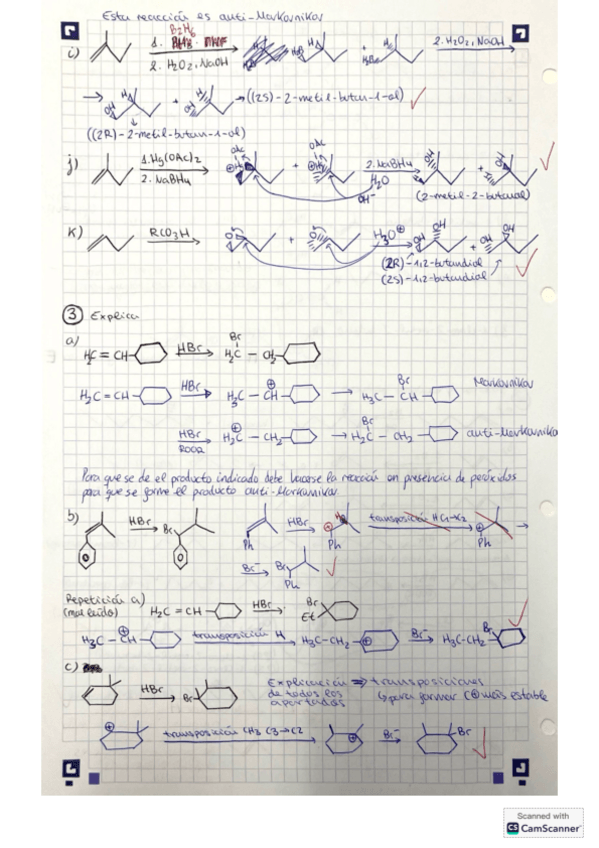 Esta reacción es anti-Markovnikov
B2H6
i) 1. THF 2. H2O2, NaOH + 2. H2O2, NaOH
+ → ((2S)-2-metil-butan-1-ol)
((2R)-2-metil-butan-1-ol)
j) 1. Hg(OAc)2 2. NaBH4 OAc + OAc 2. NaBH4 H2O OH- +
(2-metil-2-butanol)
k) RCO3H + H3O⊕ OH OH + OH OH
(2R)-1,2-butandiol
(2S)-1,2-butandiol
③ Explica
a) H2C = CH- HBr Br H2C - CH2-
H2C = CH- HBr H3C - CH- → H3C - CH- Br Markovnikov
HBr ROOR H2C - CH2- → H2C - CH2- Br anti-Markovnikov
Para que se de el producto indicado debe hacerse la reacción en presencia de peróxidos
para que se forme el producto anti-Markovnikov
b) HBr Br Ph HBr Ph transposición Ph
Br- Br Ph
Repetición a) (mal leído) H2C = CH- HBr Br Et
H3C - CH- transposición H H3C-CH2- Br- H3C-CH2- Br
c) HBr Br Explicación ⇒ transposiciones
de todos los apartados ↳ para formar C⊕ más estable
transposición CH3 C3→C2 Br- Br
Scanned with
CS CamScanner